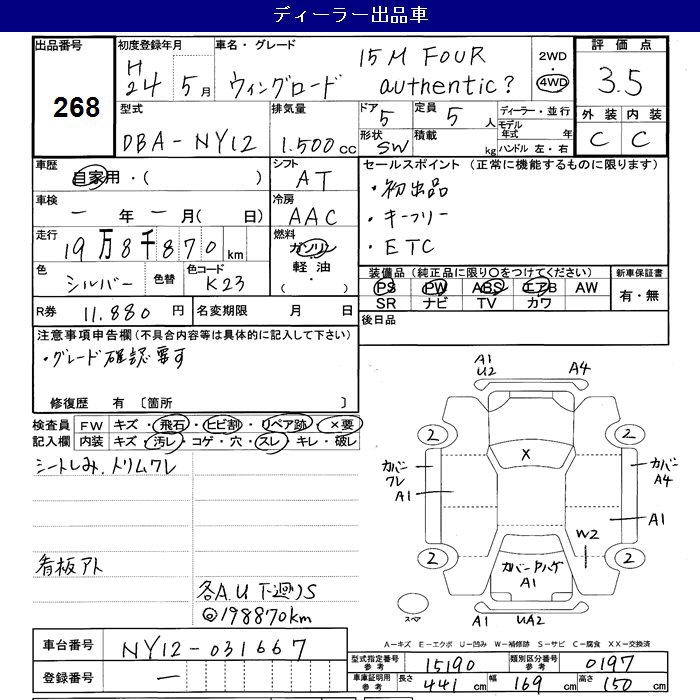 ディーラー出品車
出品番号 268
初度登録年月 H24 5月
車名・グレード ウィングロード 15M FOUR authentic?
2WD 4WD
評価点 3.5
外装 内装
C C
型式 DBA-NY12
排気量 1.500cc
ドア 5
形状 SW
定員 5人
積載 kg
ディーラー・並行
モデル年式 年
ハンドル 左・右
車歴 自家用・( )
シフト AT
セールスポイント (正常に機能するものに限ります)
・初出品
・キーフリー
・ETC
車検 ー年ー月( 日)
冷房 AAC
走行 19万8千870km
燃料 ガソリン 軽油 ( )
色 シルバー
色替
色コード K23
装備品 (純正品に限り○をつけてください)
PS PW ABS エアB AW
SR ナビ TV カワ
新車保証書 有・無
R券 11.880円
名変期限 月 日
後日品
注意事項申告欄(不具合内容等は具体的に記入して下さい)
・グレード確認要す
修復歴 有 〔箇所 〕
検査員記入欄
FW キズ・飛石・ヒビ割・リペア跡・×要
内装 キズ・汚レ・コゲ・穴・スレ・キレ・破レ
シートしみ、トリムワレ
看板アト
各A.U 下廻りS
◎198870km
A1
U2
A4
2
2
カバーワレ
A1
X
カバーA4
A1
W2
2
2
カバーアトハゲ
A1
スペア
A1
UA2
A-キズ E-エクボ U-凹み W-補修跡 S-サビ C-腐食 XX-交換済
車台番号 NY12-031667
登録番号 ー
型式指定番号 参考 15190
類別区分番号 参考 0197
車庫証明用 参考 長さ 441cm 幅 169cm 高さ 150cm